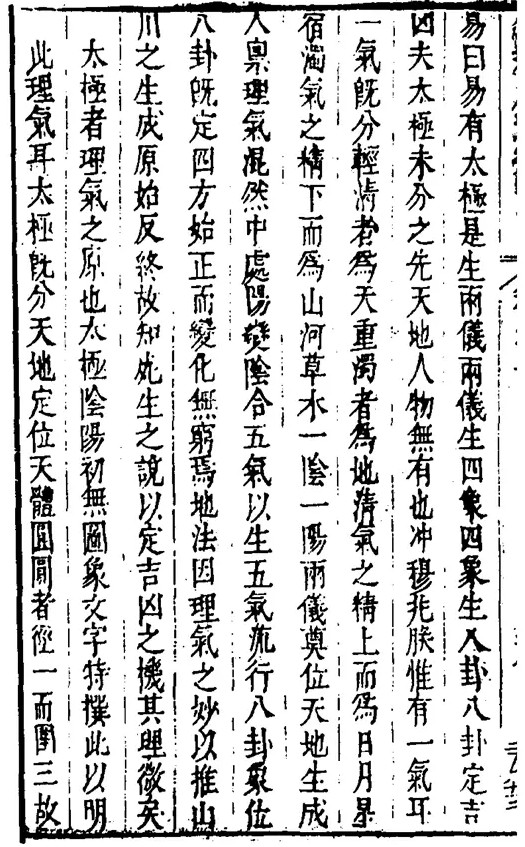 易曰易有太極是生兩儀兩儀生四象四象生八卦八卦定吉
凶夫太極未分之先天地人物無有也冲穆兆朕惟有一氣耳
一氣既分輕清者爲天重濁者爲地清氣之精上而爲日月星
宿濁氣之精下而爲山河草水一陰一陽兩儀奠位天地生成
人禀理氣混然中處陽變陰合五氣以生五氣流行八卦象位
八卦既定四方始正而變化無窮焉地法因理氣之妙以推山
川之生成原始反終故知死生之說以定吉凶之機其理微矣
太極者理氣之原也太極陰陽初無圖象文字特撰此以明
此理氣耳太極既分天地定位天體圓圓者徑一而圍三故